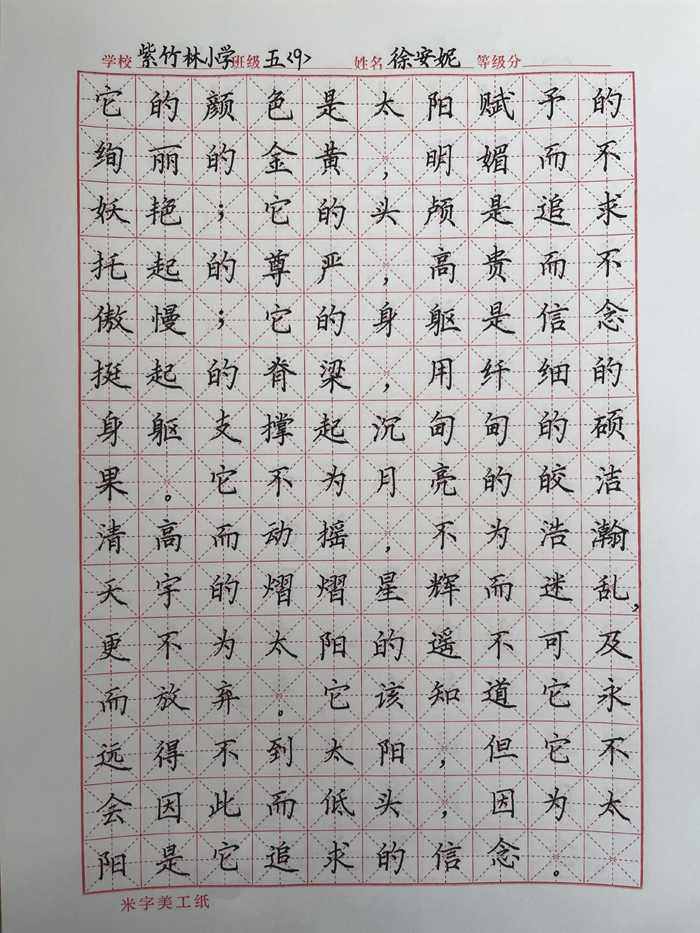 学校 紫竹林小学 班级 五<9> 姓名 徐安妮 等级分
它的颜色是太阳赋予的
绚丽的金黄，明媚而不
妖艳；它的头颅是追求
托起的尊严，高贵而不
傲慢；它的身躯是信念
挺起的脊梁，用纤细的
身躯支撑起沉甸甸的硕
果。它不为月亮的皎洁
清高而动摇，不为浩瀚
天宇的熠熠星辉而迷乱，
更不为太阳的遥不可及
而放弃。它该知道它永
远得不到太阳，但它不
会因此而低头，因为太
阳是它追求的信念。
米字美工纸